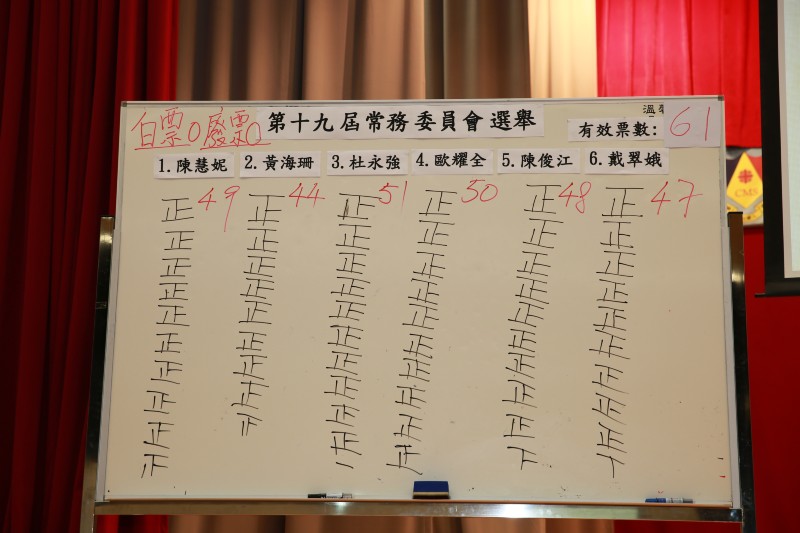 白票0 廢票0 第十九屆常務委員會選舉
有效票數: 61
1.陳慧妮 2.黃海珊 3.杜永強 4.歐耀全 5.陳俊江 6.戴翠娥
49 44 51 50 48 47
正 正 正 正 正 正
正 正 正 正 正 正
正 正 正 正 正 正
正 正 正 正 正 正
正 正 正 正 正 正
正 正 正 正 正 正
正 正 正 正 正 正
正 正 正 正 正 正
正 正 正 正 正
正 正
CMS